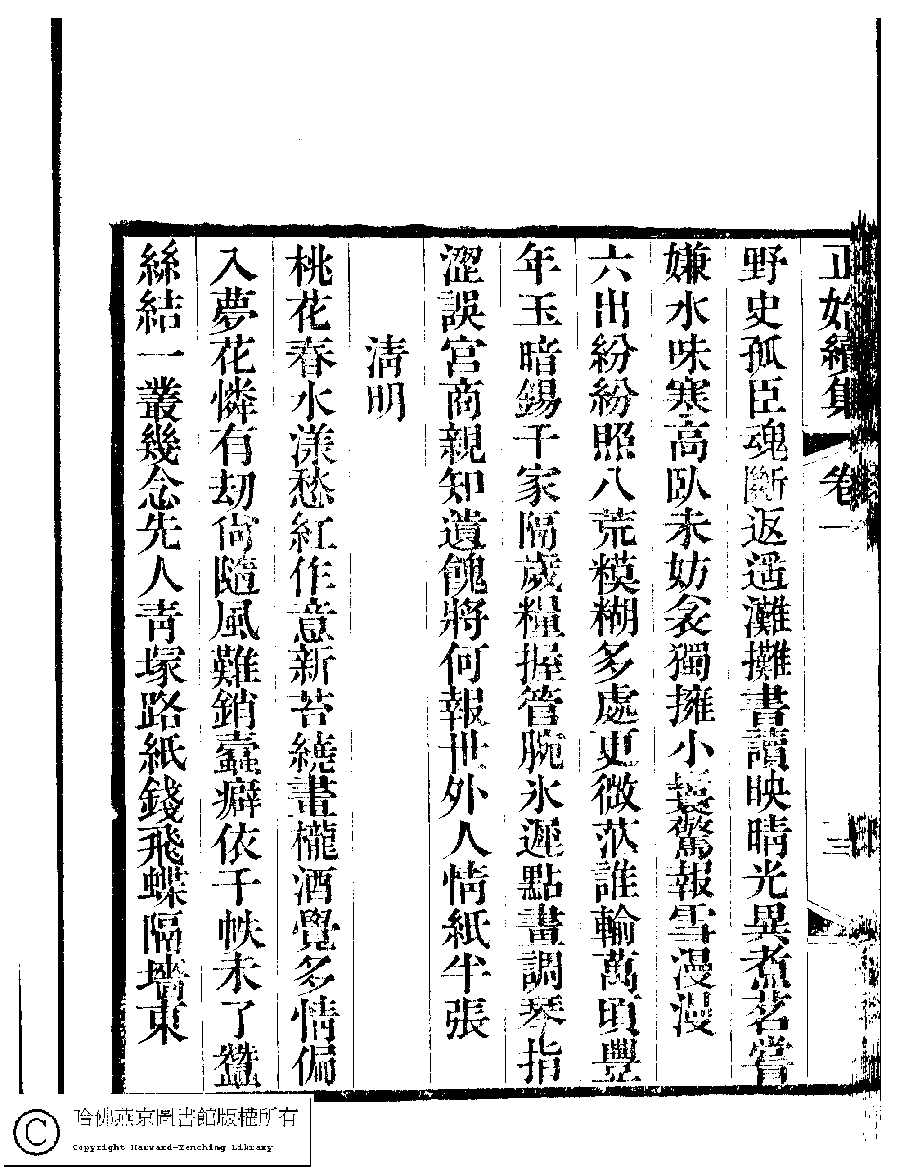 正始續集 卷一 三
野史孤臣魂斷返遥灘攤書讀映晴光異煮茗嘗
嫌水味寒高臥未妨衾獨擁小鬟驚報雪漫漫
六出紛紛照八荒糢糊多處更微茫誰輸萬頃豐
年玉暗錫千家隔歲糧握管腕氷遲點畫調琴指
澀誤宮商親知遺餽將何報世外人情紙半張
淸明
桃花春水漾愁紅作意新苔繞畫櫳酒覺多情偏
入夢花憐有劫尙隨風難銷蠧癖依千帙未了蠶
絲結一叢幾念先人靑塚路紙錢飛蝶隔墻東
哈佛燕京圖書館版權所有
Copyright Harvard-Yenching Library